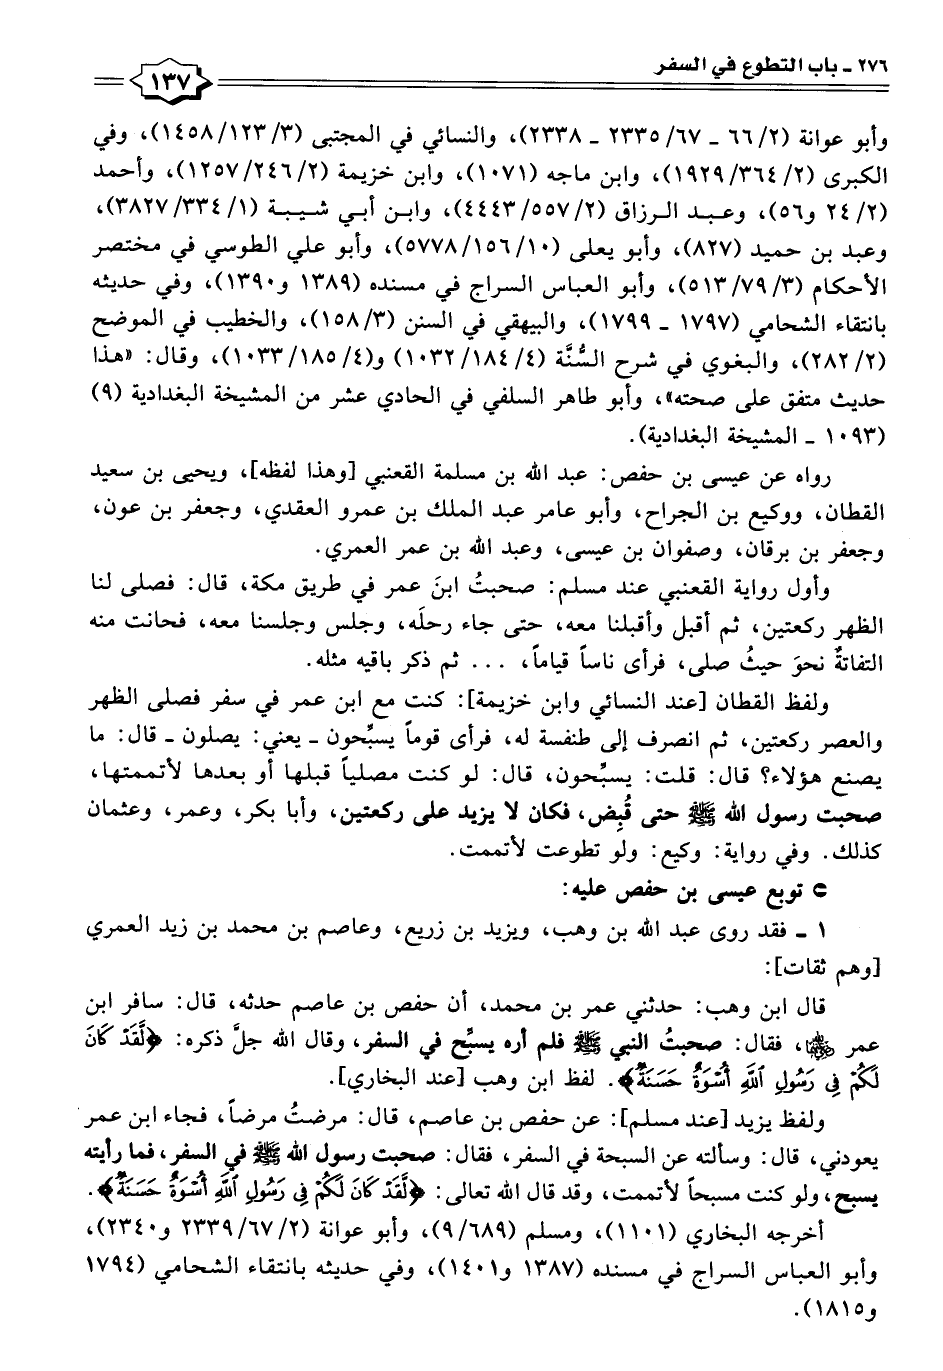 ٢٧٦ ـ باب التطوع في السفر
١٣٧
وأبو عوانة (٢/ ٦٦ ـ ٦٧/ ٢٣٣٥ ـ ٢٣٣٨)، والنسائي في المجتبى (٣/ ١٢٣/ ١٤٥٨)، وفي
الكبرى (٢/ ٣٦٤/ ١٩٢٩)، وابن ماجه (١٠٧١)، وابن خزيمة (٢/ ٢٤٦/ ١٢٥٧)، وأحمد
(٢/ ٢٤ و٥٦)، وعبد الرزاق (٢/ ٥٥٧/ ٤٤٤٣)، وابن أبي شيبة (١/ ٣٣٤/ ٣٨٢٧)،
وعبد بن حميد (٨٢٧)، وأبو يعلى (١٠/ ١٥٦/ ٥٧٧٨)، وأبو علي الطوسي في مختصر
الأحكام (٣/ ٧٩/ ٥١٣)، وأبو العباس السراج في مسنده (١٣٨٩ و١٣٩٠)، وفي حديثه
بانتقاء الشحامي (١٧٩٧ ـ ١٧٩٩)، والبيهقي في السنن (٣/ ١٥٨)، والخطيب في الموضح
(٢/ ٢٨٢)، والبغوي في شرح السُّنَّة (٤/ ١٨٤/ ١٠٣٢) و(٤/ ١٨٥/ ١٠٣٣)، وقال: «هذا
حديث متفق على صحته»، وأبو طاهر السلفي في الحادي عشر من المشيخة البغدادية (٩)
(١٠٩٣ ـ المشيخة البغدادية).
رواه عن عيسى بن حفص: عبد الله بن مسلمة القعنبي [وهذا لفظه]، ويحيى بن سعيد
القطان، ووكيع بن الجراح، وأبو عامر عبد الملك بن عمرو العقدي، وجعفر بن عون،
وجعفر بن برقان، وصفوان بن عيسى، وعبد الله بن عمر العمري.
وأول رواية القعنبي عند مسلم: صحبتُ ابنَ عمر في طريق مكة، قال: فصلى لنا
الظهر ركعتين، ثم أقبل وأقبلنا معه، حتى جاء رحلَه، وجلس وجلسنا معه، فحانت منه
التفاتةٌ نحوَ حيثُ صلى، فرأى ناساً قياماً، ... ثم ذكر باقيه مثله.
ولفظ القطان [عند النسائي وابن خزيمة]: كنت مع ابن عمر في سفر فصلى الظهر
والعصر ركعتين، ثم انصرف إلى طنفسة له، فرأى قوماً يسبِّحون ـ يعني: يصلون ـ قال: ما
يصنع هؤلاء؟ قال: قلت: يسبِّحون، قال: لو كنت مصلياً قبلها أو بعدها لأتممتها،
صحبت رسول الله ﷺ حتى قُبِض، فكان لا يزيد على ركعتين، وأبا بكر، وعمر، وعثمان
كذلك. وفي رواية: وكيع: ولو تطوعت لأتممت.
⊃ توبع عيسى بن حفص عليه:
١ ـ فقد روى عبد الله بن وهب، ويزيد بن زريع، وعاصم بن محمد بن زيد العمري
[وهم ثقات]:
قال ابن وهب: حدثني عمر بن محمد، أن حفص بن عاصم حدثه، قال: سافر ابن
عمر ﵄، فقال: صحبتُ النبي ﷺ فلم أره يسبِّح في السفر، وقال الله جلَّ ذكره: ﴿لَّقَدْ كَانَ
لَكُمْ فِي رَسُولِ ٱللَّهِ أُسْوَةٌ حَسَنَةٌ﴾. لفظ ابن وهب [عند البخاري].
ولفظ يزيد [عند مسلم]: عن حفص بن عاصم، قال: مرضتُ مرضاً، فجاء ابن عمر
يعودني، قال: وسألته عن السبحة في السفر، فقال: صحبت رسول الله ﷺ في السفر، فما رأيته
يسبح، ولو كنت مسبحاً لأتممت، وقد قال الله تعالى: ﴿لَّقَدْ كَانَ لَكُمْ فِي رَسُولِ ٱللَّهِ أُسْوَةٌ حَسَنَةٌ﴾.
أخرجه البخاري (١١٠١)، ومسلم (٩/٦٨٩)، وأبو عوانة (٢/ ٦٧/ ٢٣٣٩ و٢٣٤٠)،
وأبو العباس السراج في مسنده (١٣٨٧ و١٤٠١)، وفي حديثه بانتقاء الشحامي (١٧٩٤
و١٨١٥).